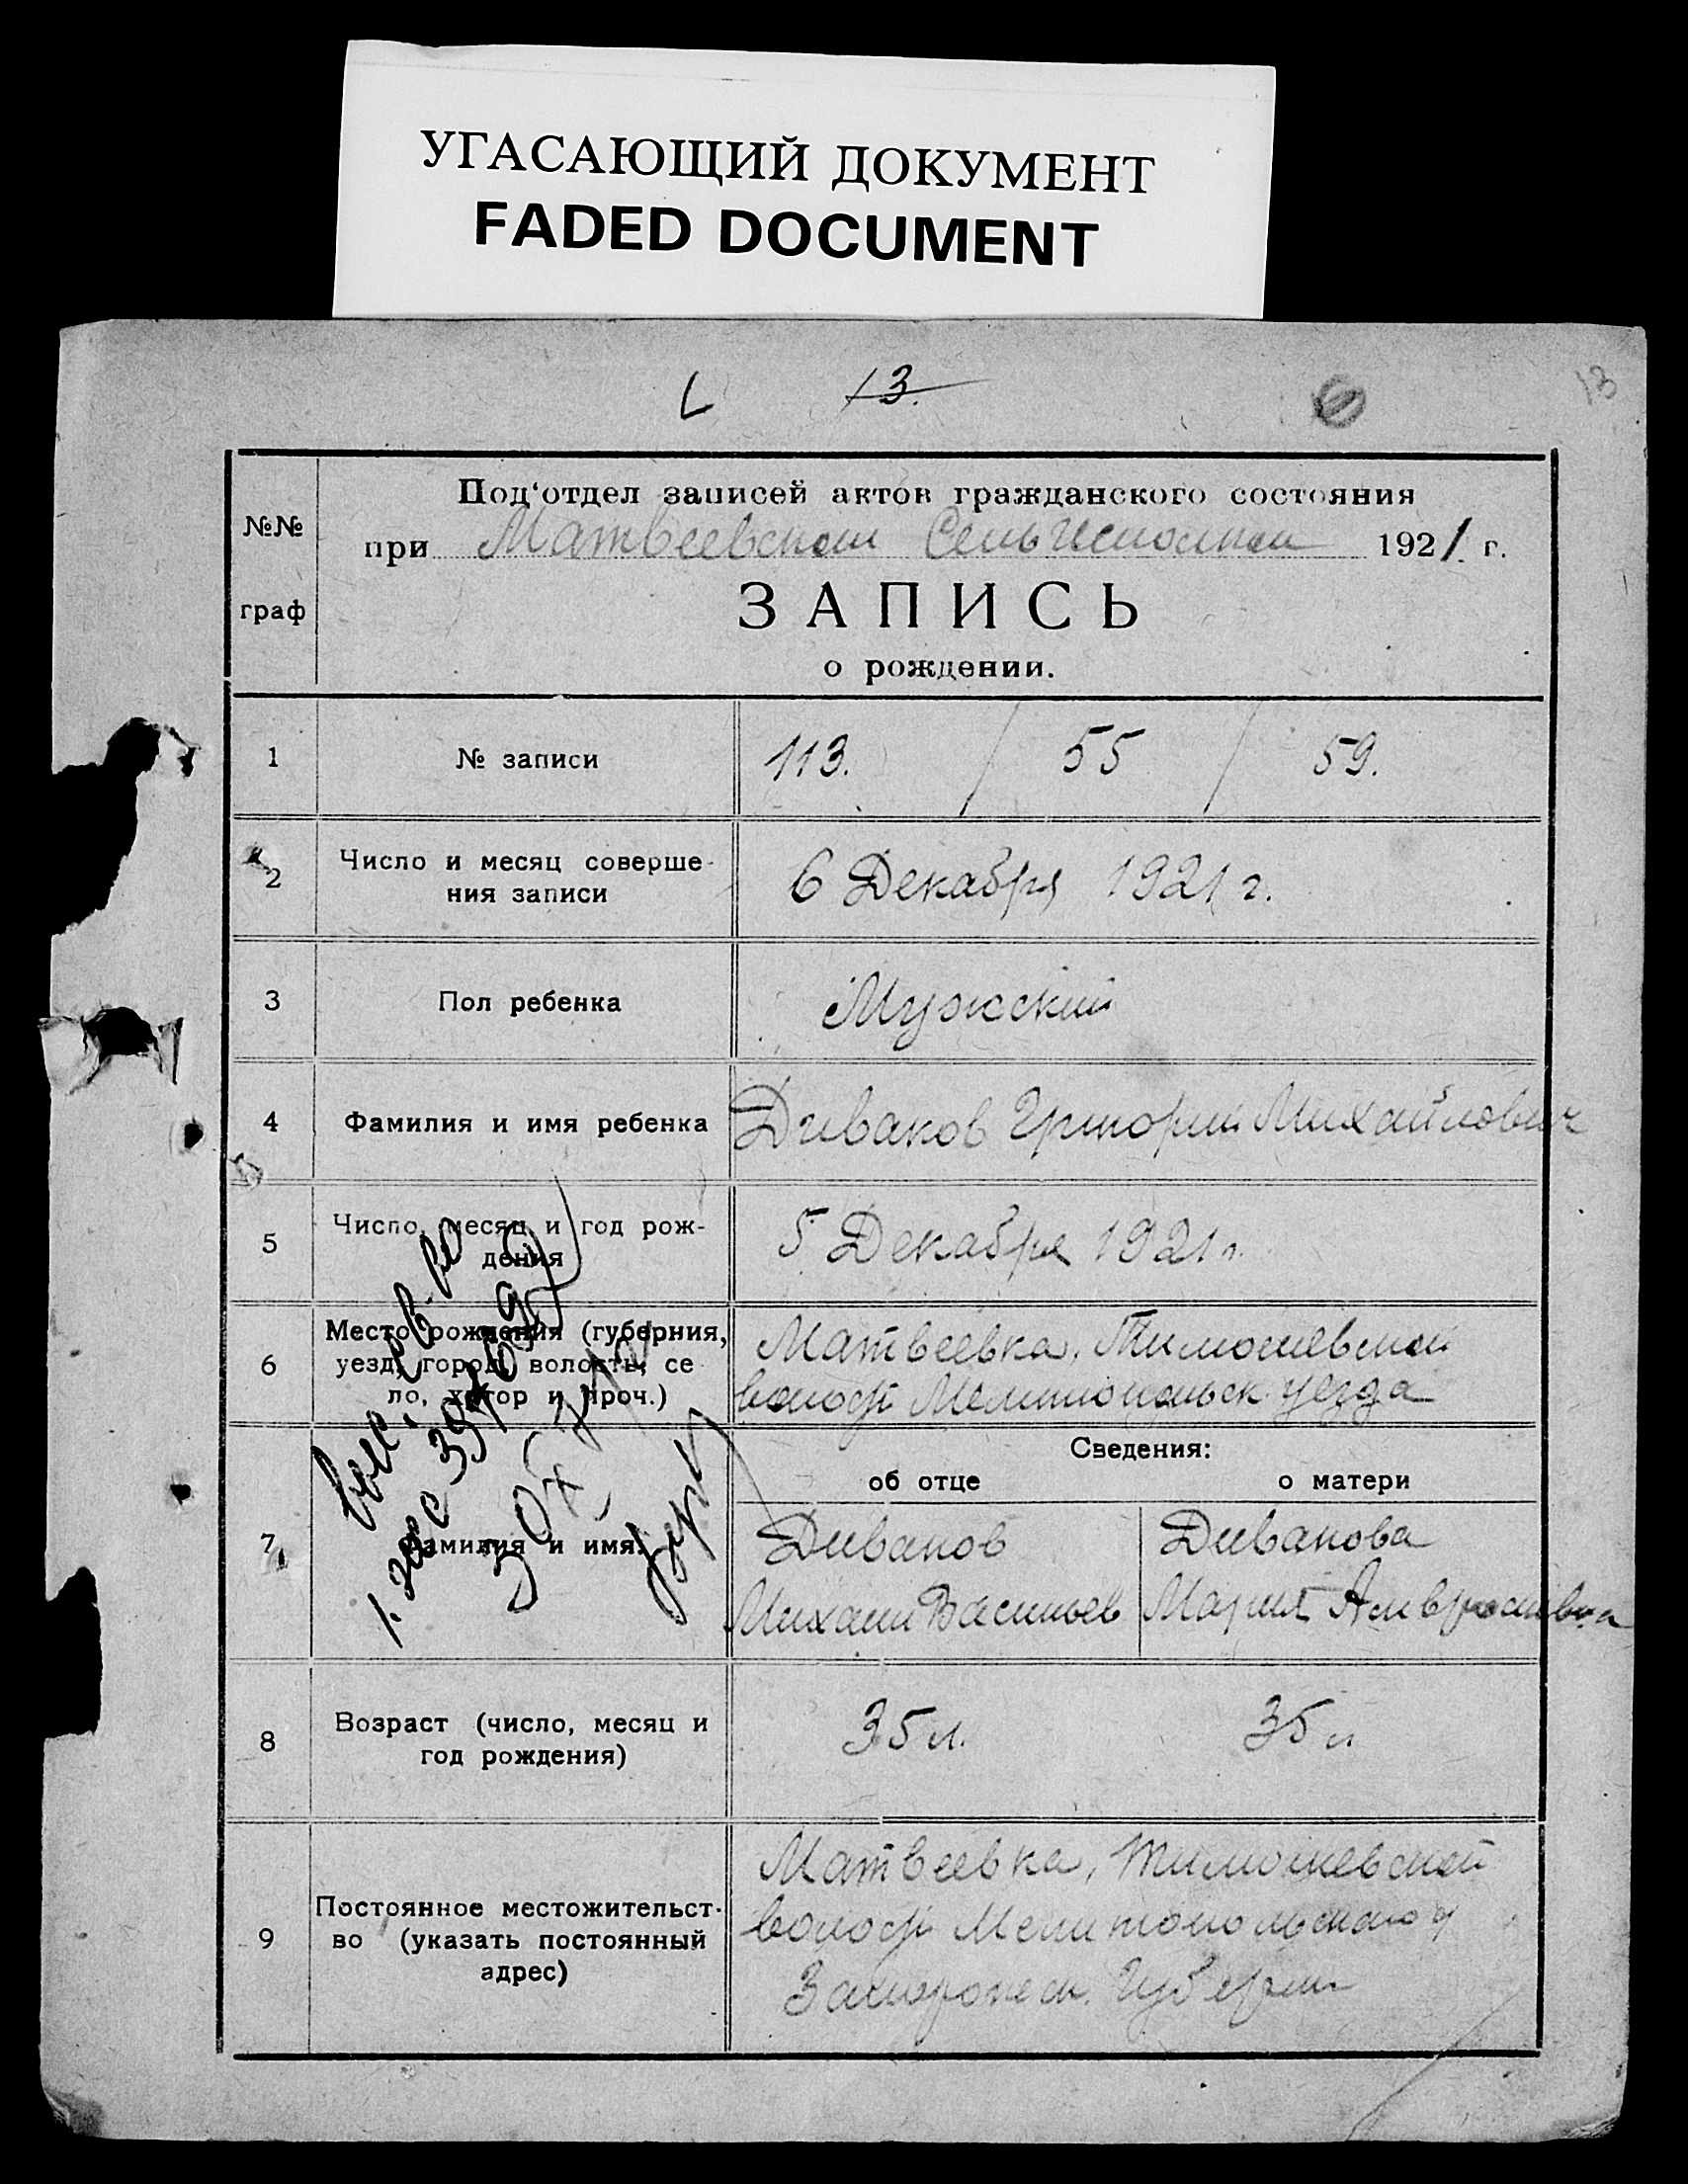 УГАСАЮЩИЙ ДОКУМЕНТ
FADED DOCUMENT
13.
13
№№
граф
Под‘отдел записей актов гражданского состояния
при Матвеевском Сельисполком 1921 г.
ЗАПИСЬ
о рождении.
1 № записи 113. / 55 / 59.
2 Число и месяц соверше-
ния записи
6 Декабря 1921 г.
3 Пол ребенка Мужский
4 Фамилия и имя ребенка Диваков Григорий Михайлович
5 Число, месяц и год рож-
дения
5 Декабря 1921 г.
6 Место рождения (губерния,
уезд, город, волость, се
ло, хутор и проч.)
Матвеевка, Тимошевской
волости Мелитопольск. уезда
Сведения:
об отце о матери
7 Фамилия и имя.
Диваков
Михаил Васильев
Дивакова
Мария Амвросиевна
8 Возраст (число, месяц и
год рождения)
35 л. 35 л
9 Постоянное местожительст-
во (указать постоянный
адрес)
Матвеевка, Тимошевской
волости Мелитопольского у
Запорожск. Губернии